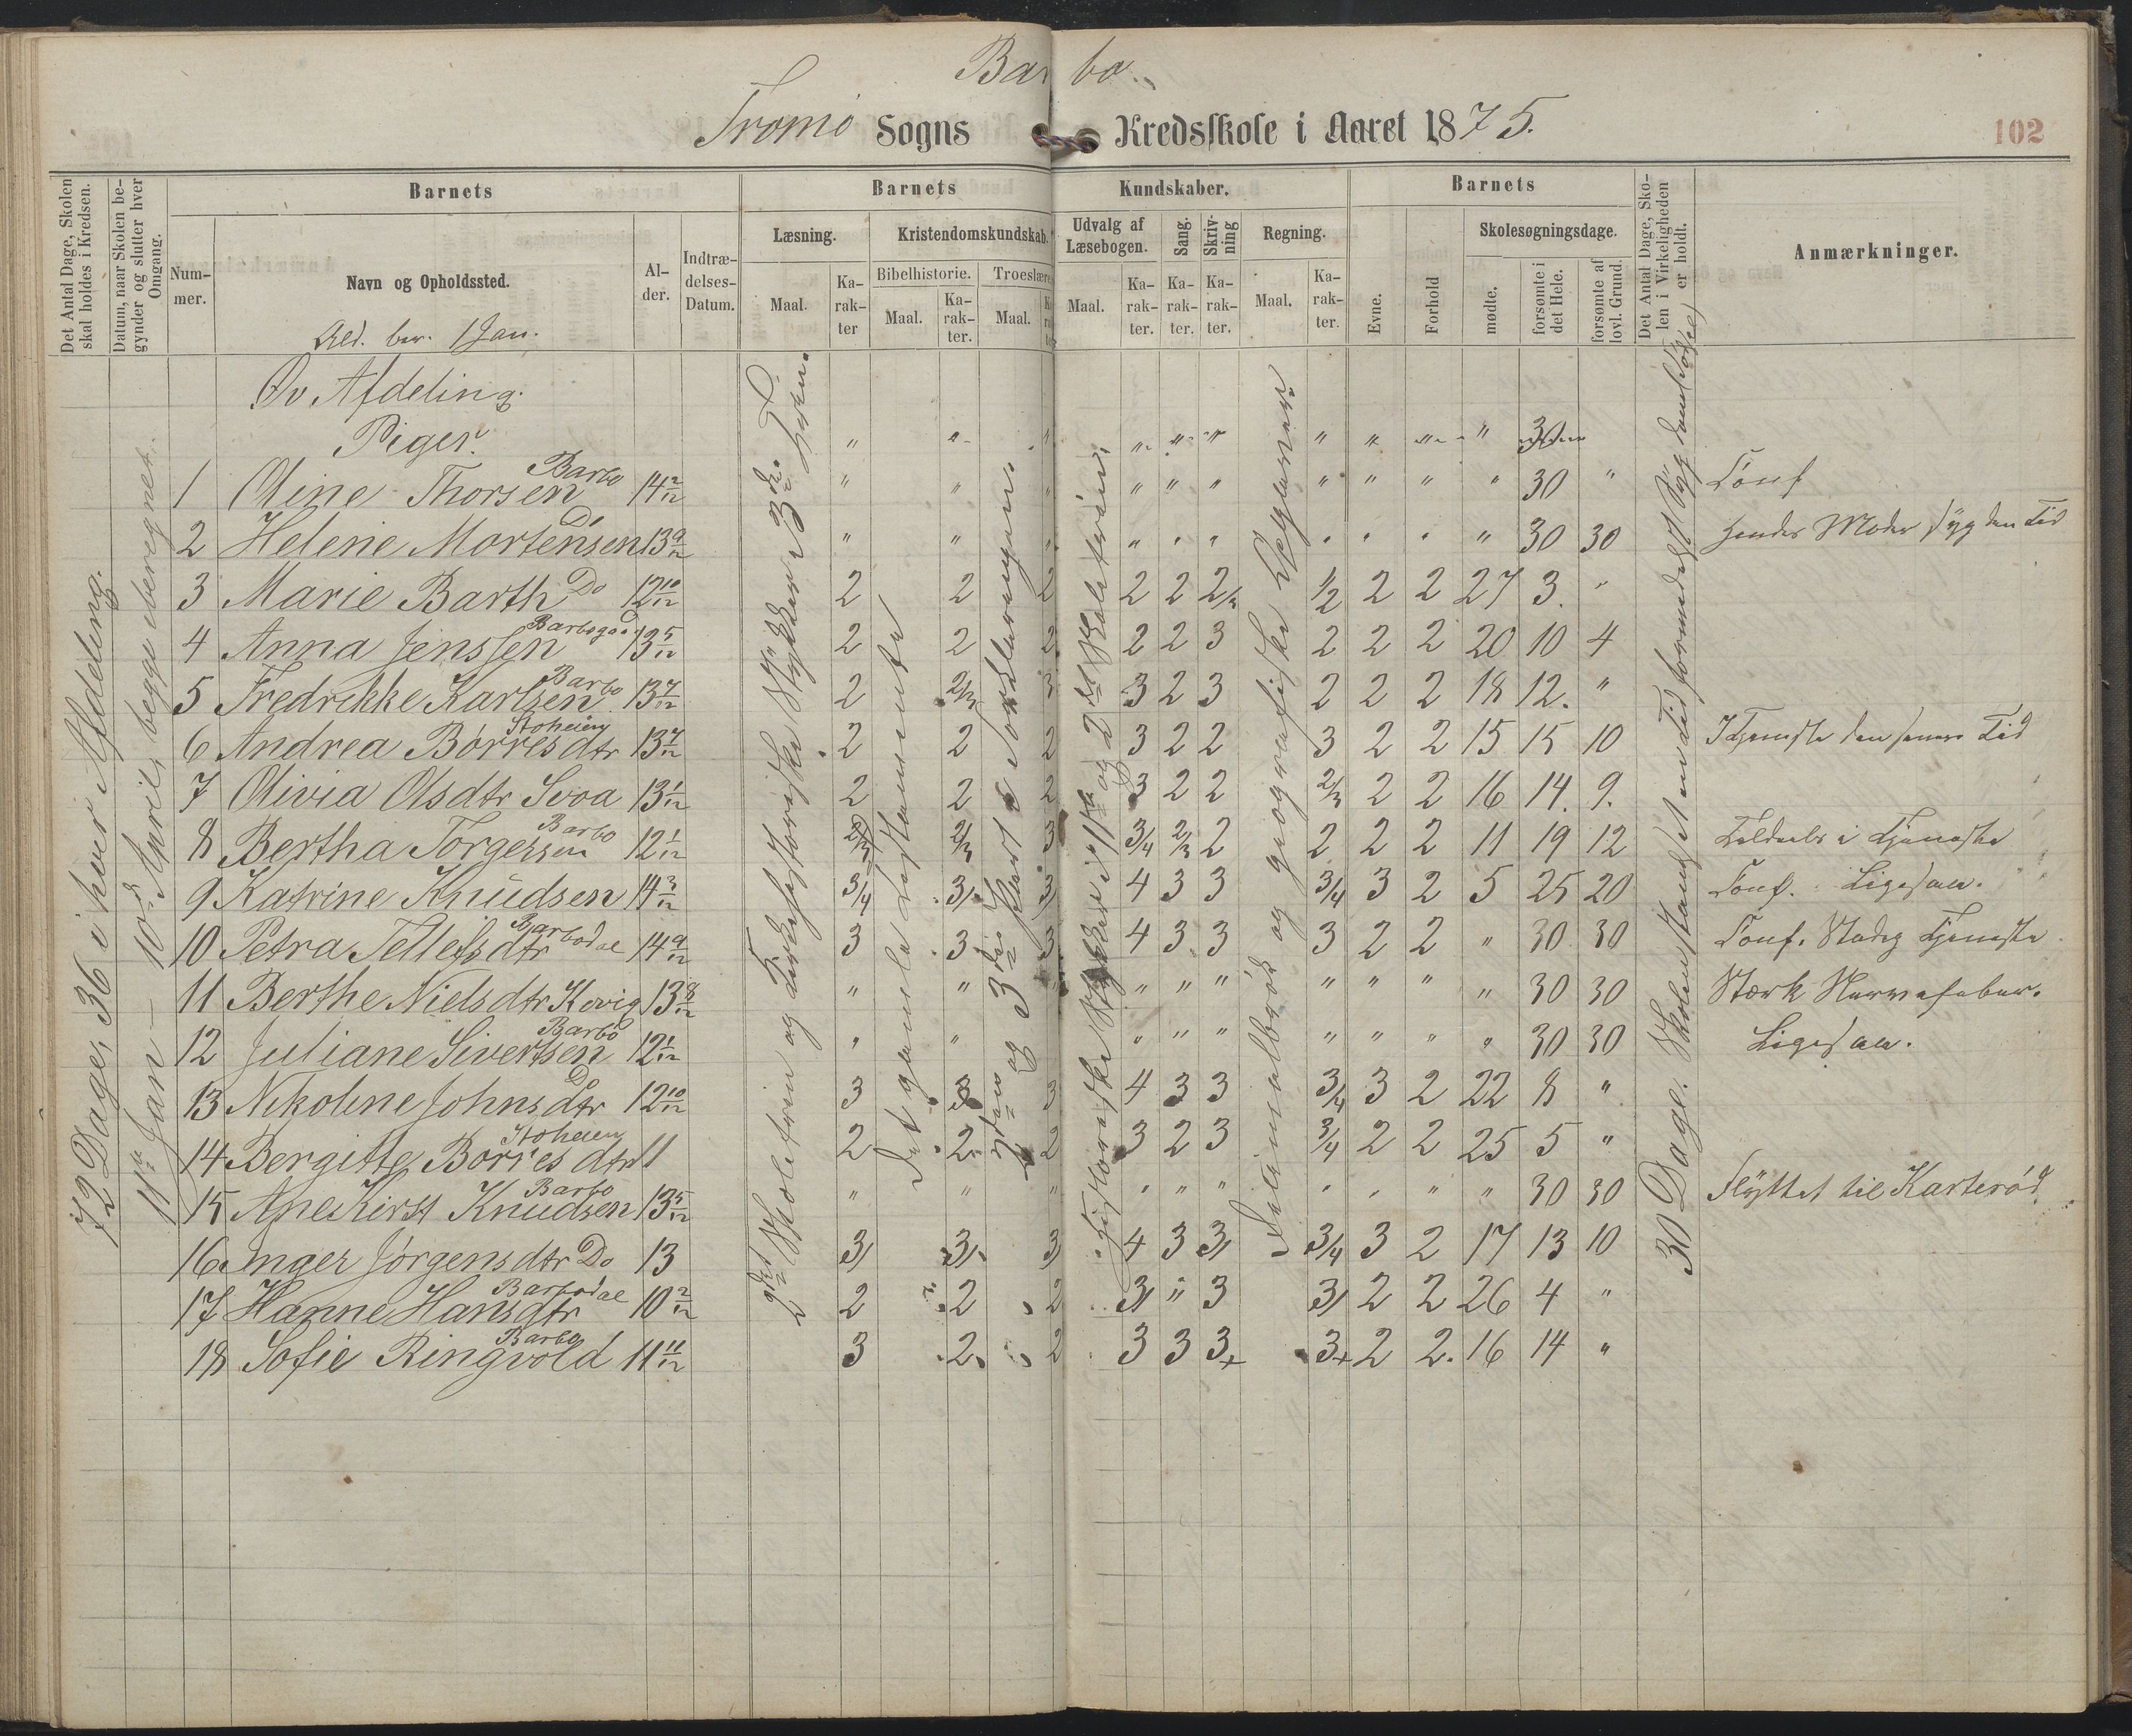 Barbo.
Tromö Sogns Kredsskole i Aaret 1875.
102
Det Antal Dage, Skolen skal holdes i Kredsen.
Datum, naar Skolen begynder og slutter hver Omgang.
Barnets
Nummer.
Navn og Opholdssted.
Ald. ber. 1 Jan.
Alder.
Indtrædelses-Datum.
Barnets Kundskaber.
Læsning.
Maal.
Karakter
Kristendomskundskab.
Bibelhistorie.
Maal.
Karakter.
Troeslære
Maal.
Udvalg af Læsebogen.
Maal.
Karakter.
Sang.
Karakter.
Skrivning
Karakter.
Regning.
Maal.
Karakter.
Barnets
Evne.
Forhold
Skolesøgningsdage.
mødte.
forsømte i det Hele.
forsømte af lovl. Grund.
Det Antal Dage, Skolen i Virkeligheden er holdt.
Anmærkninger.
72 Dage, 36 i hver Afdeling.
11te Jan – 10d April, begge iberegnet.
2det Skoletrin og Kirkehistoriske Stykker 3die Trin.
Det gamle Testamente
2den og 3die Part e Forklaringen.
Historiske Stykker i 1ste og 2det Skoletrin.
Decimalbrök og geografiske Opgaver
30 Dage.
Öv Afdeling.
Piger.
1 Oline Thorsen Barbo 14 2/12 " " " " " " " " " " 30 " Konf
2 Helene Mortensen Do 13 9/12 " " " " " " " " " " 30 30 Hendes Moder syg den Tid
3 Marie Barth Do 12 10/12 2 2 2 2 2 2/3 1/2 2 2 27 3. "
4 Anna Jenssen Barbogd 13 5/12 2 2 2 2 2 3 2 2 2 20 10 4
5 Fredrikke Karlsen Barbo 13 7/12 2 2/3 3 3 2 3 2 2 2 18 12. "
6 Andrea Börresdtr Stoheien 13 7/12 2 2 2 3 2 2 3 2 2 15 15 10 I Tjeneste den senere Tid
7 Olivia Olsdtr Svoa 13 1/12 2 2 2 3 2 2 2/3 2 2 16 14. 9.
8 Bertha Torgersen Barbo 12 1/12 2/3 2/3 3 3/4 2/3 2 2 2 2 11 19 12 Tildeels i Tjeneste
9 Katrine Knudsen 14 3/12 3/4 3/ 3/ 4 3 3 3/4 3 2 5 25 20 Konf. Ligesaa.
10 Petra Tellefsdtr Barbodal 14 9/12 3 3 3 4 3 3 3 2 2 " 30 30 Konf. Stadig Tjeneste
11 Berthe Nielsdtr Kovig 13 8/12 " " " " " " " " " " 30 30 Stærk Nervefeber.
12 Juliane Sivertsen Barbo 12 1/12 " " " " " " " " " " 30 30 Ligesaa.
13 Nikoline Johnsdtr Do 12 10/12 3 3 3 4 3 3 3/4 3 2 22 8 "
14 Bergitte Börresdtr Stoheien 11 2 2 2 3 2 3 3/4 2 2 25 5 "
15 Ane Kirst Knudsen Barbo 13 5/12 " " " " " " " " " " 30 30 Flyttet til Karteröd.
16 Inger Jörgensdtr Do 13 3/ 3/ 3/ 4 3 3/ 3/4 3 2 17 13 10
17 Hanne Hansdtr Barbodal 10 2/12 2 2 2 3/ " 3 3/ 2 2 26 4 "
18 Sofie Ringvold Barbo 11 11/12 3 2 2 3 3 3+ 3+ 2 2. 16 14 "